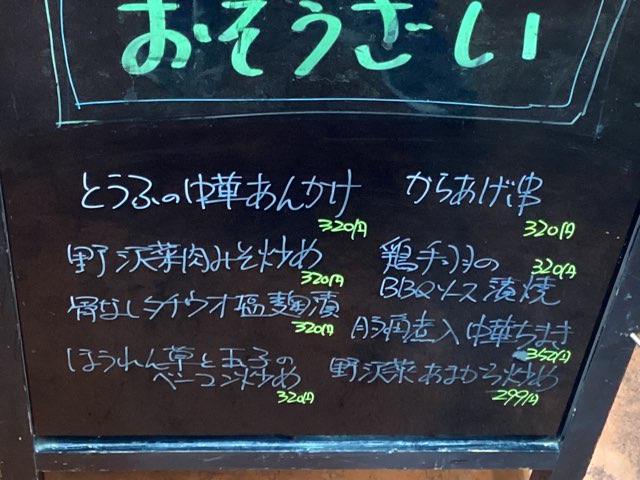 おそうざい
とうふの中華あんかけ
320円
野沢菜肉みそ炒め
320円
骨なしタチウオ塩麹漬
320円
ほうれん草と玉子の
ベーコン炒め
320円
からあげ串
320円
鶏手羽の
320円
BBQソース漬焼
豚角煮入中華ちまき
350円
野沢菜あまから炒め
299円